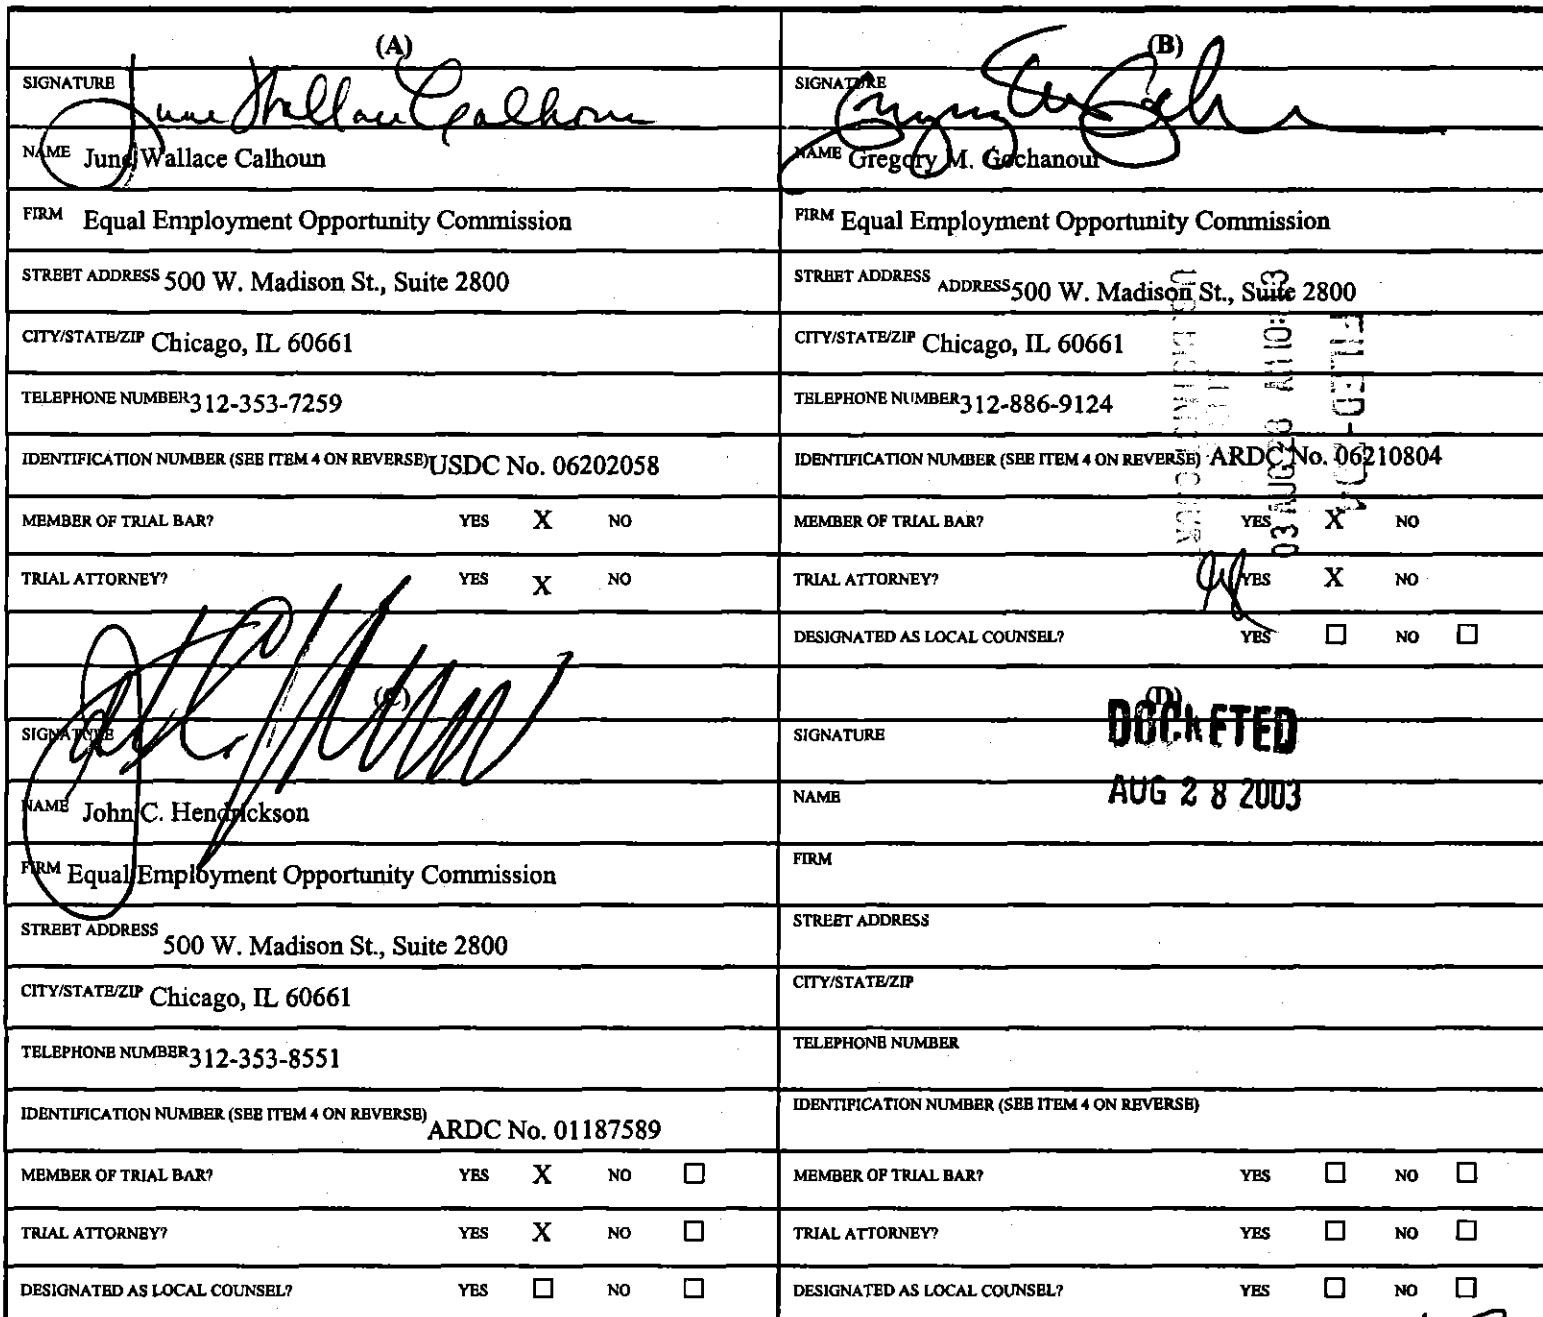 (A)
SIGNATURE June Wallace Calhoun
NAME June Wallace Calhoun
FIRM Equal Employment Opportunity Commission
STREET ADDRESS 500 W. Madison St., Suite 2800
CITY/STATE/ZIP Chicago, IL 60661
TELEPHONE NUMBER 312-353-7259
IDENTIFICATION NUMBER (SEE ITEM 4 ON REVERSE) USDC No. 06202058
MEMBER OF TRIAL BAR? YES X NO
TRIAL ATTORNEY? YES X NO
(B)
SIGNATURE
NAME Gregory M. Gochanour
FIRM Equal Employment Opportunity Commission
STREET ADDRESS ADDRESS 500 W. Madison St., Suite 2800
CITY/STATE/ZIP Chicago, IL 60661
TELEPHONE NUMBER 312-886-9124
IDENTIFICATION NUMBER (SEE ITEM 4 ON REVERSE) ARDC No. 06210804
MEMBER OF TRIAL BAR? YES X NO
TRIAL ATTORNEY? YES X NO
DESIGNATED AS LOCAL COUNSEL? YES □ NO □
FILED
03 AUG 28
(C)
SIGNATURE
NAME John C. Hendrickson
FIRM Equal Employment Opportunity Commission
STREET ADDRESS 500 W. Madison St., Suite 2800
CITY/STATE/ZIP Chicago, IL 60661
TELEPHONE NUMBER 312-353-8551
IDENTIFICATION NUMBER (SEE ITEM 4 ON REVERSE) ARDC No. 01187589
MEMBER OF TRIAL BAR? YES X NO □
TRIAL ATTORNEY? YES X NO □
DESIGNATED AS LOCAL COUNSEL? YES □ NO □
(D)
DOCKETED
SIGNATURE
AUG 28 2003
NAME
FIRM
STREET ADDRESS
CITY/STATE/ZIP
TELEPHONE NUMBER
IDENTIFICATION NUMBER (SEE ITEM 4 ON REVERSE)
MEMBER OF TRIAL BAR? YES □ NO □
TRIAL ATTORNEY? YES □ NO □
DESIGNATED AS LOCAL COUNSEL? YES □ NO □